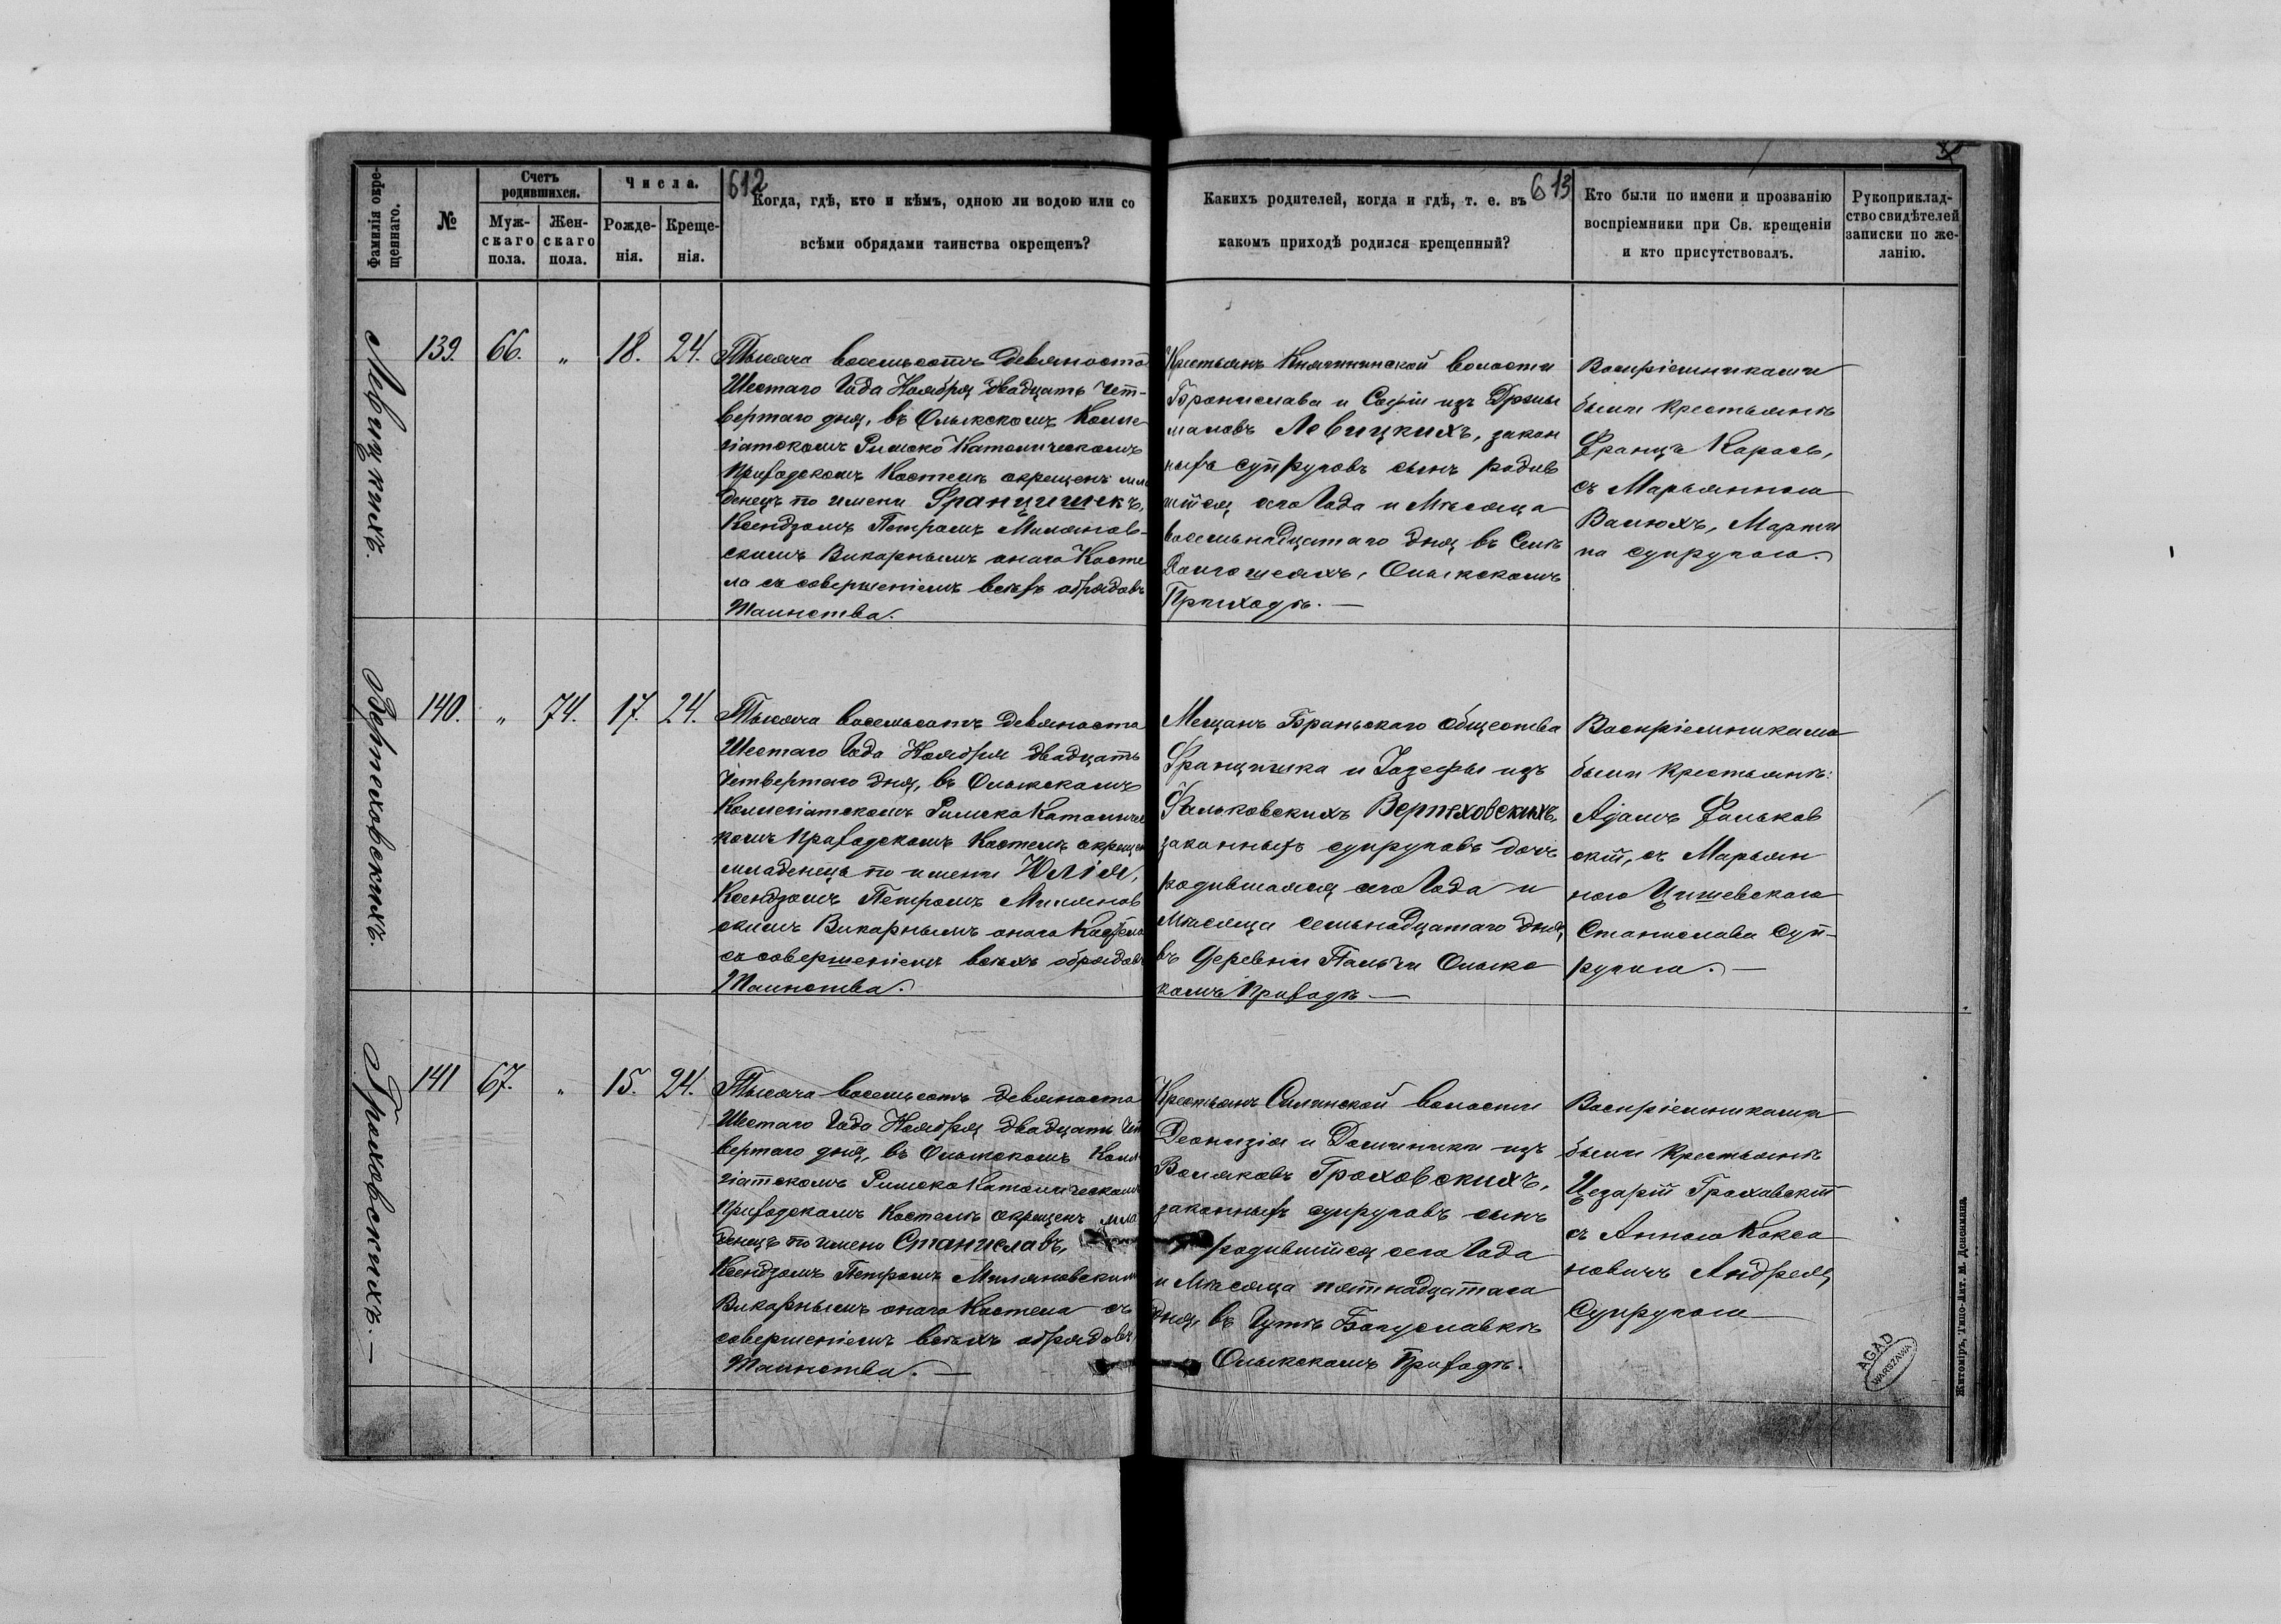 612
613
Фамилія окре-
щеннаго.
№
Счетъ
родившихся.
Муж-
скаго
пола.
Жен-
скаго
пола.
Числа.
Рожде-
нія.
Креще-
нія.
Когда, гдѣ, кто и кѣмъ, одною ли водою или со
всѣми обрядами таинства окрещенъ?
Какихъ родителей, когда и гдѣ, т. е. въ
какомъ приходѣ родился крещенный?
Кто были по имени и прозванію
воспріемники при Св. крещеніи
и кто присутствовалъ.
Рукоприклад-
ство свидѣтелей
записки по же-
ланію.
Левицкихъ.
139. 66. „ 18. 24.
Тысяча восемьсотъ девяносто
Шестаго Года Ноября двадцать чет-
вертаго дня, въ Олыкскомъ Колле
гіатскомъ Римско Католическомъ
Приходскомъ Костелѣ окрещенъ мла
денецъ по имени Францишекъ,
Ксендзомъ Петромъ Милянов-
скимъ Викарнымъ онаго Косте
ла съ совершеніемъ всѣхъ обрядовъ
Таинства.
Крестьянъ Княгининской волости
Бронислава и Софіи изъ
Левицкихъ, закон
ныхъ супруговъ сынъ родив
шійся сего Года и Мѣсяца
восемьнадцатаго дня въ Селѣ
Долгошеяхъ, Олыкскомъ
Приходѣ. —
Воспріемниками
были крестьянѣ
Франца Карась,
съ Марьянною
Валюхъ, Марти
на супругою.
Верпеховскихъ.
140. „ 74. 17. 24.
Тысяча восемьсотъ девяноста
Шестаго Года Ноября двадцать
четвертаго дня, въ Олыкскомъ
Коллегіатскомъ Римско Католичес
комъ Приходскомъ Костелѣ окрещен
младенецъ по имени Юлія,
Ксендзомъ Петромъ Милянов
скимъ Викарнымъ онаго Костела
съ совершеніемъ всѣхъ обрядовъ
Таинства.
Мещанъ Браньскаго общества
Францишка и Іозефы изъ
Фальковскихъ Верпеховскихъ,
законныхъ супруговъ дочь
родившаяся сего Года и
Мѣсяца семьнадцатаго дня,
въ Деревни Пальчи Олыкс
комъ Приходѣ —
Воспріемниками
были крестьянѣ:
Адамъ Фальков
скій, съ Марьян
ною Цишевскаго
Станислава суп-
ругою. —
Гроховскихъ. —
141 67. „ 15. 24.
Тысяча восемьсотъ девяноста
Шестаго Года Ноября двадцать чет
вертаго дня, въ Олыкскомъ Колле
гіатскомъ Римско Католическомъ
Приходскомъ Костелѣ окрещенъ мла
денецъ по имени Станиславъ,
Ксендзомъ Петромъ Миляновским
Викарнымъ онаго Костела съ
совершеніемъ всѣхъ обрядовъ
Таинства. —
Крестьянъ Силинской волости
Деонизія и Доминики изъ
Воляковъ Гроховскихъ,
законныхъ супруговъ сынъ
родившійся сего Года
и Мѣсяца пятнадцатаго
дня, въ Гутѣ Богуславкѣ
Олыкскомъ Приходѣ.
Воспріемниками
были крестьянѣ
Цезарій Гроховскій
съ Анною Кокса
новичъ Андрея
Супругою
AGAD
WARSZAWA
Житоміръ, Типо-Лит. М. Дененмана.